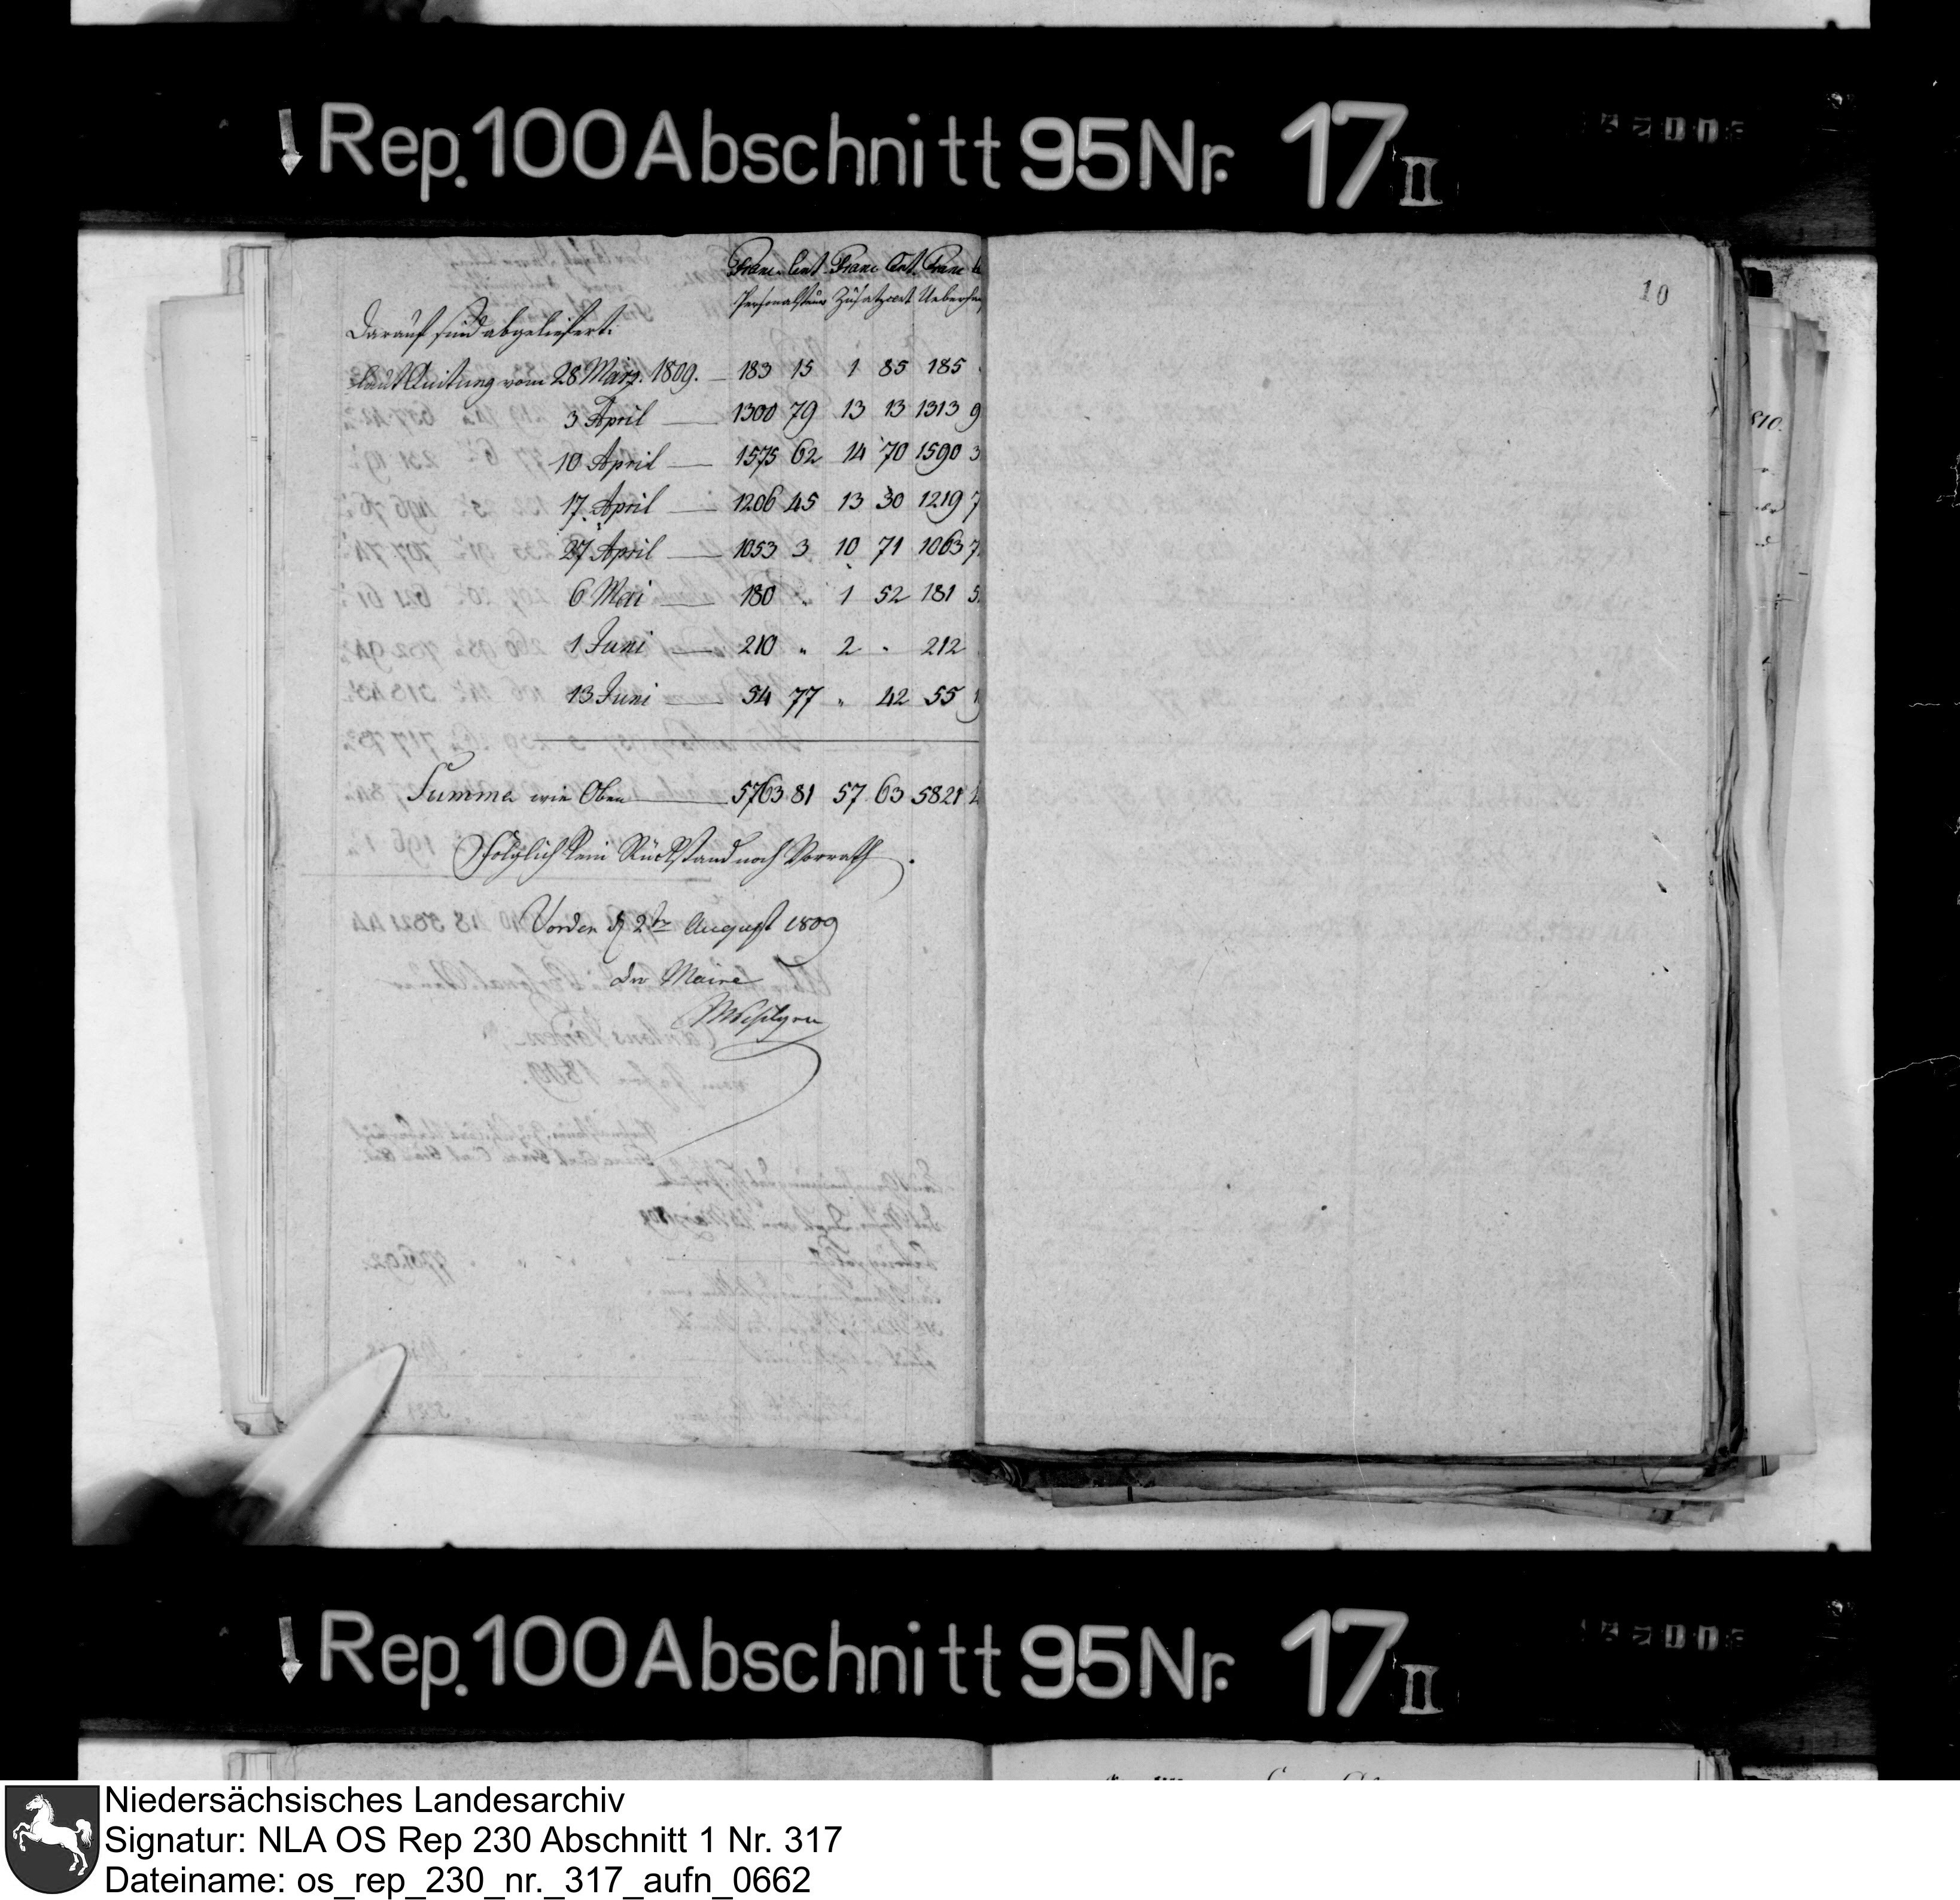 Rep. 100 Abschnitt 95 Nr. 17 II
Franc. Cent Franc Cent. Franc
Personalsteuer Zusatzcent
Darauf sind abgeliefert:
laut Quitung vom 28 März. 1809. — 183 15 1 85 185
3 April — 1300 79 13 13 1313 9
10 April — 1575 62 14 70 1590 3
17. April — 1206 45 13 30 1219 7
27 April — 1053 3 10 71 1063 7
6 Mai — 180 " 1 52 181 5
1 Juni — 210 " 2 " 212
13 Juni — 54 77 " 42 55 1
Summa wie Oben — 5763 81 57 63 5821
Folglich kein Rückstand noch Vorrath.
Vörden d 2ten August 1809
der Maire
10
810.
Rep. 100 Abschnitt 95 Nr. 17 II
Niedersächsisches Landesarchiv
Signatur: NLA OS Rep 230 Abschnitt 1 Nr. 317
Dateiname: os_rep_230_nr._317_aufn_0662